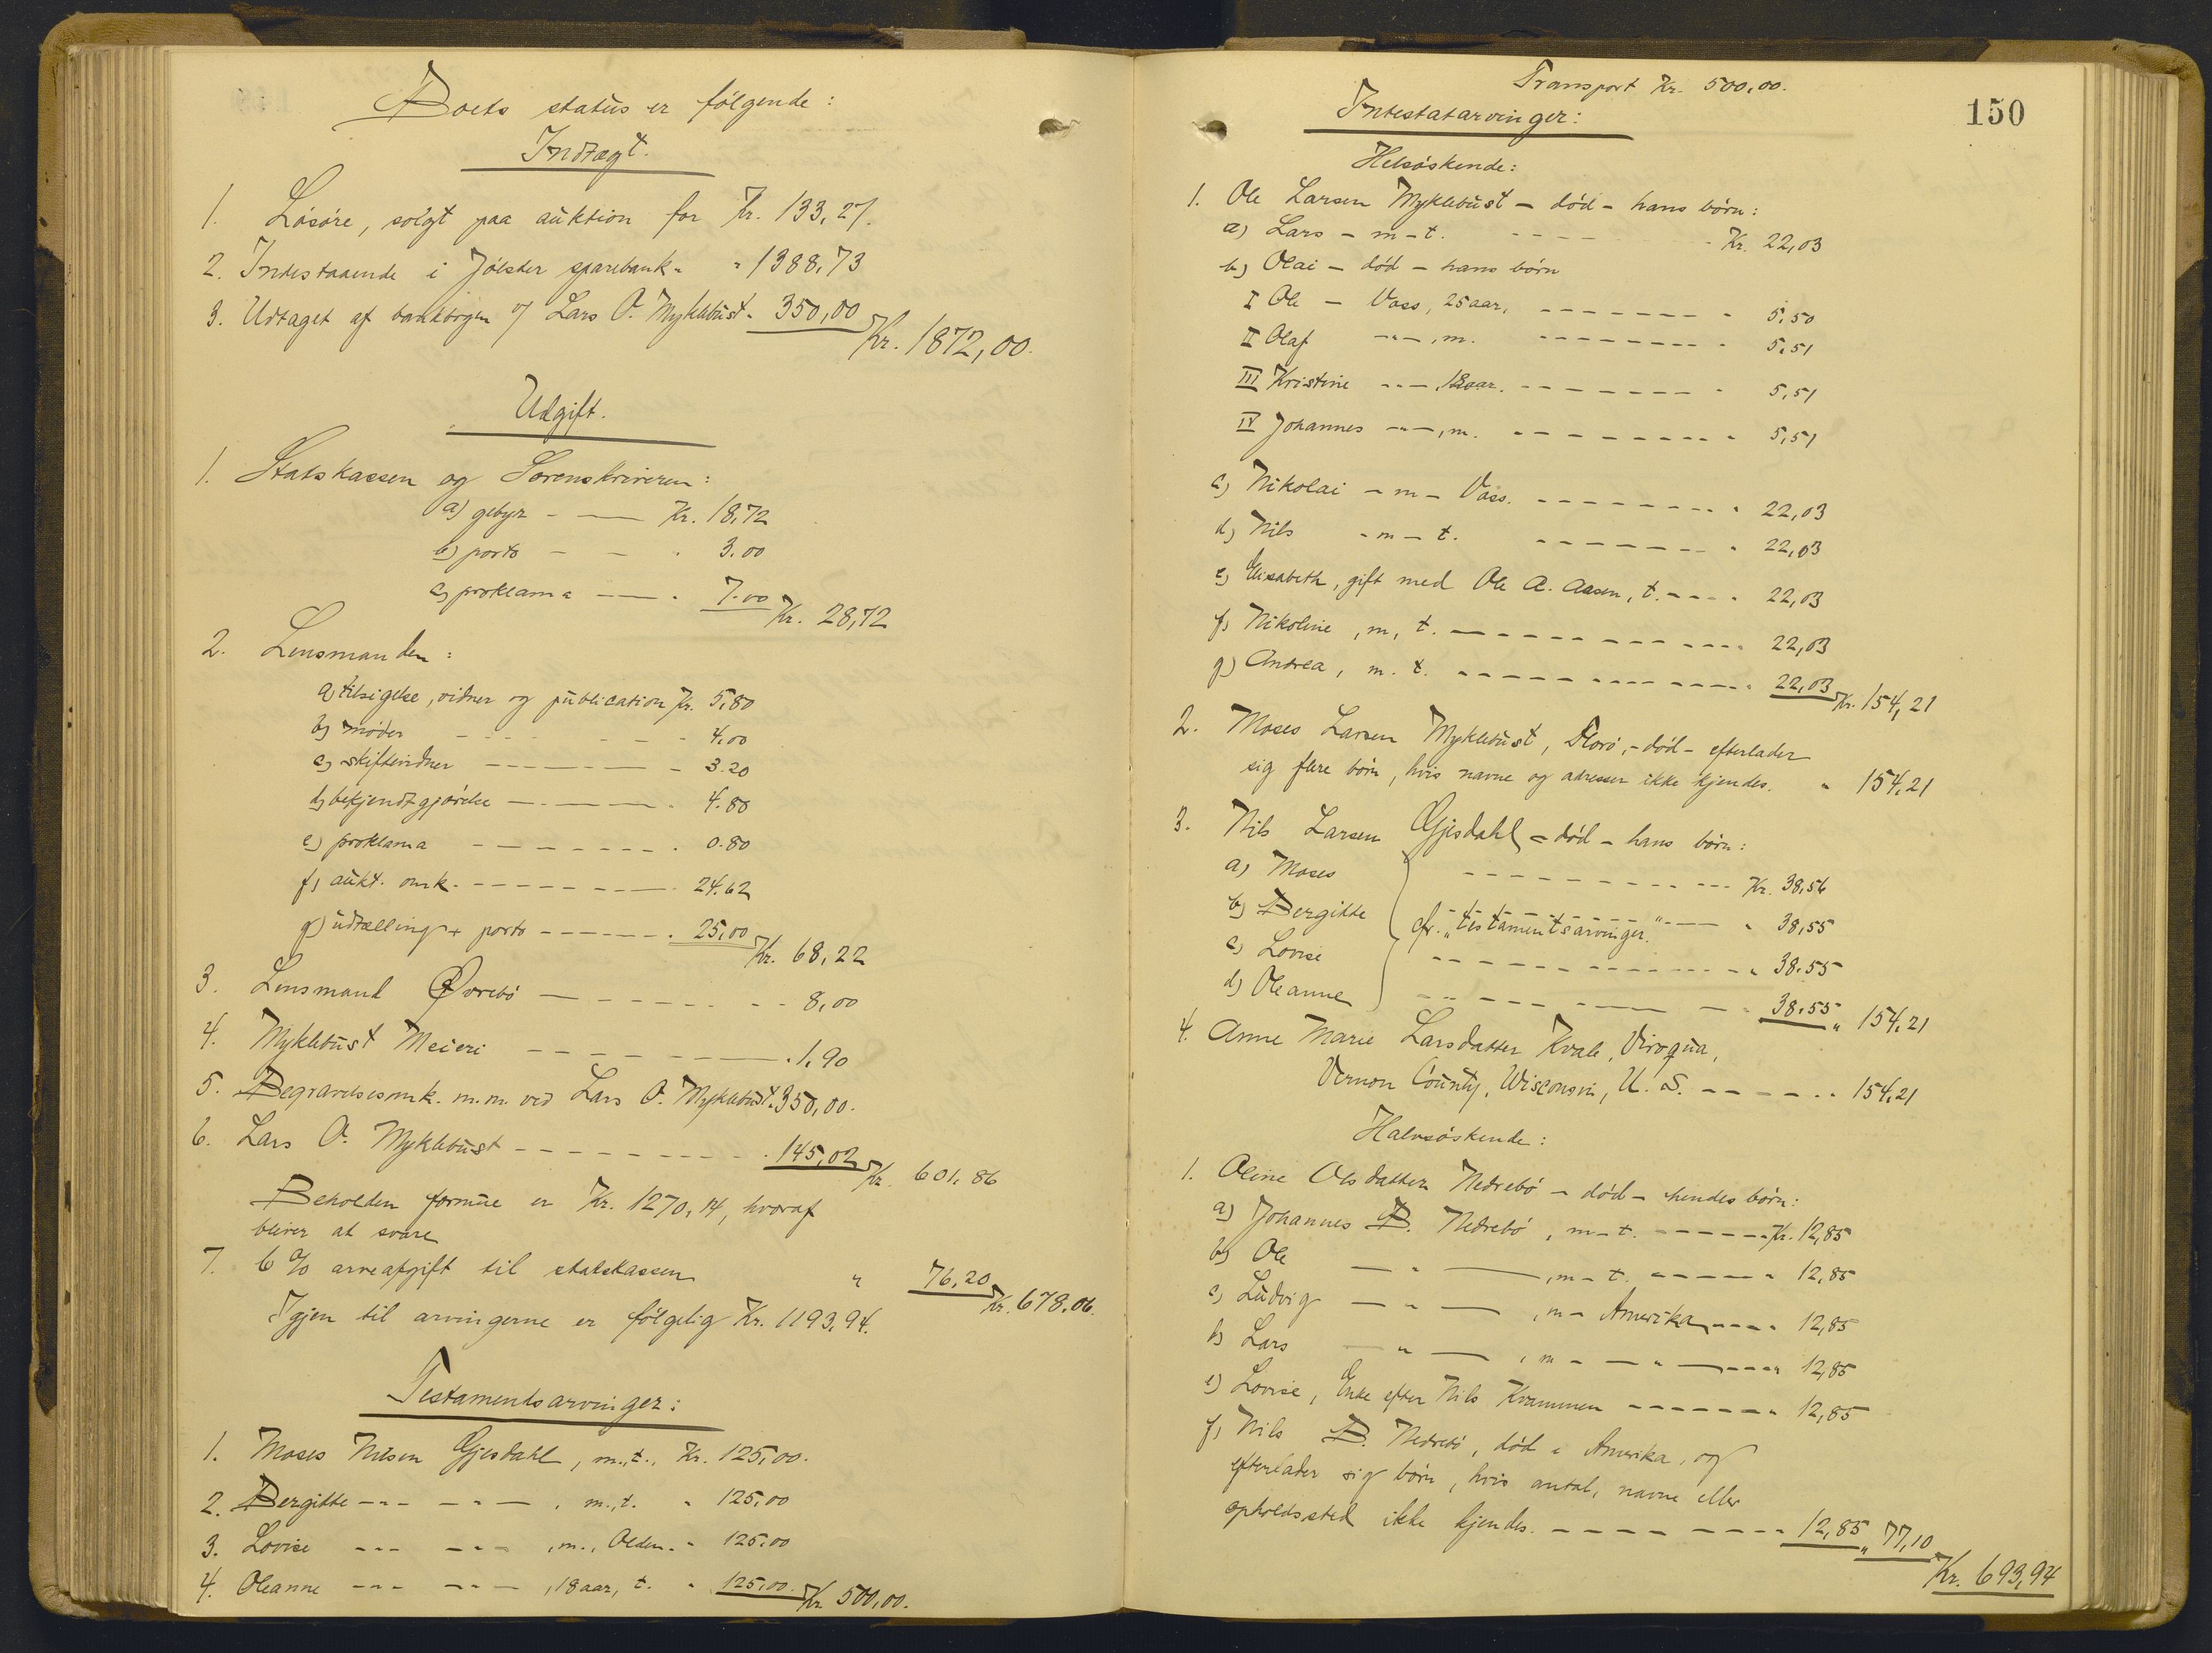 Boets status er følgende:
Indtægt.
1. Løsøre, solgt paa auktion for Kr. 133,27.
2. Indestaaende i Jølster sparebank " " 1388,73
3. Udtaget af bankbogen v/ Lars O. Myklebust " 350,00
Kr. 1872,00.
Udgift.
1. Statskassen og Sorenskriveren:
a) gebyr - — Kr. 18,72
b) porto - - " 3.00
c) proklama — " 7.00
Kr. 28,72
2. Lensmanden:
a) tilsigelse, vidner og publication Kr. 5,80
b) møder - - - - 4,00
c) skiftevidner - - - - 3.20
d) bekjendtgjørelse - - - " 4.80
e) proklama - - - - " 0.80
f) aukt. omk. - - - - " 24.62
g) udtælling + porto - - - " 25,00
Kr. 68,22
3. Lensmand Øvrebø - - - - - 8,00
4. Myklebust Meieri - - - - " 1,90
5. Begravelsesomk. m.m. ved Lars O. Myklebust " 350,00.
6. Lars O. Myklebust - - - - " 145,02
Kr. 601,86
Beholden formue er Kr. 1270,14, hvoraf
bliver at svare
7. 6 % arveafgift til statskassen " 76,20
Kr. 678,06.
Igjen til arvingerne er følgelig Kr. 1193,94.
Testamentsarvinger:
1. Moses Nilsen Gjesdahl, m., t., Kr. 125,00.
2. Bergitte -"- -"-, m., t. " 125,00
3. Lovise -"- -"-, m., Olden. " 125,00
4. Oleanne -"- -"-, 18 aar, t. " 125,00.
Kr. 500,00.
Transport Kr. 500,00.
150
Intestatarvinger:
Helsøskende:
1. Ole Larsen Myklebust - død - hans børn:
a) Lars - m - t. - - - - Kr. 22,03
b) Olai - død - hans børn
I Ole - Vass, 25 aar, - - - - " 5,50
II Olaf -"-, m. - - - - " 5,51
III Kristine -"-, 18 aar. - - - - " 5,51
IV Johannes -"-, m. - - - - " 5,51
c) Nikolai - m - Vass. - - - - " 22,03
d) Nils - m - t. - - - - " 22,03
e) Elisabeth, gift med Ole A. Aasen, t. - - - " 22,03
f) Nikoline, m, t. - - - - " 22,03
g) Andrea, m. t. - - - - " 22,03
Kr. 154,21
2. Moses Larsen Myklebust, Florø, - død - efterlader
sig flere børn, hvis navne og adresser ikke kjendes. " 154,21
3. Nils Larsen Gjesdahl - død - hans børn:
a) Moses - - - - Kr. 38,56
b) Bergitte cfr. "testamentsarvinger." - - " 38,55
c) Lovise - - - - " 38.55
d) Oleanne - - - - " 38.55
" 154,21
4. Anne Marie Larsdatter Kvale, Viroqua,
Vernon County, Wisconsin, U. S. - - - - " 154,21
Halvsøskende:
1. Oline Olsdatter Nedrebø - død - hendes børn:
a) Johannes B. Nedrebø, m - t. - - - - Kr. 12,85
b) Ole — " —, m - t. - - - - " 12,85
c) Ludvig — " —, m - Amerika - - - " 12,85
d) Lars — " —, m - — " — - - - " 12,85
e) Lovise, Enke efter Nils Kvammen - - - - " 12,85
f) Nils B. Nedrebø, død i Amerika, og
efterlader sig børn, hvis antal, navne eller
opholdssted ikke kjendes. - - - - 12,85 " 77,10
Kr. 693,94